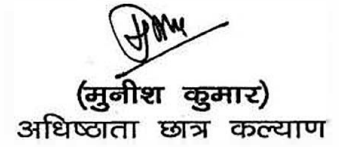 (मुनीश कुमार)
अधिष्ठाता छात्र कल्याण